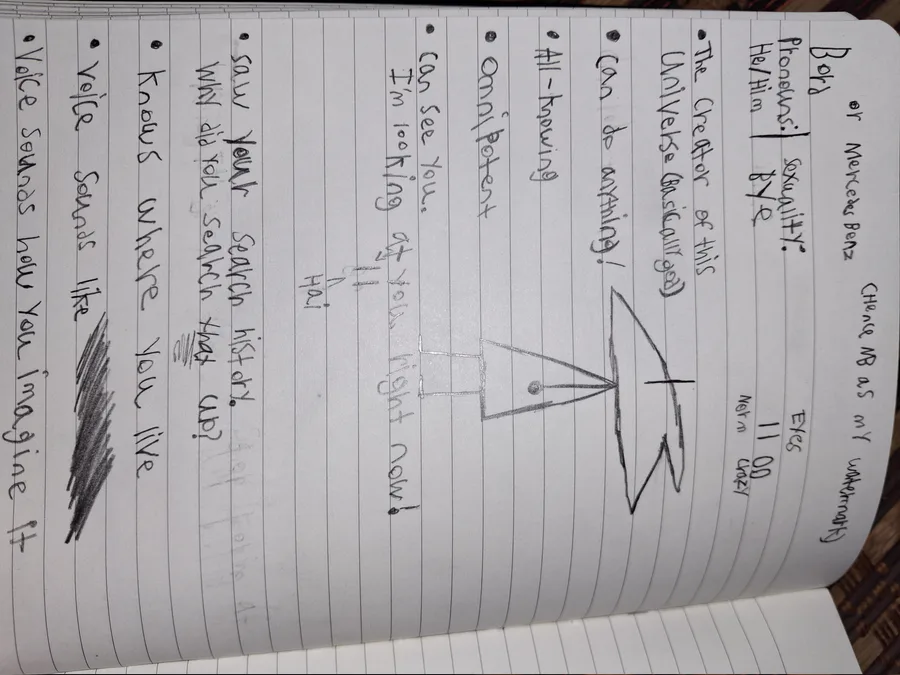 • or Mercedes Benz (Hence MB as my watermark)
Pronouns: sexuality: Eyes
He/Him Bye || 00
Norm crazy
• The creator of this
Universe (basically god)
• Can do anything!
• All-knowing
• Omnipotent
• can see you.
I'm looking at you right now!
Hai
• saw your search history.
Why did you search that up?
• Knows where you live
• Voice sounds like
• Voice sounds how you imagine it